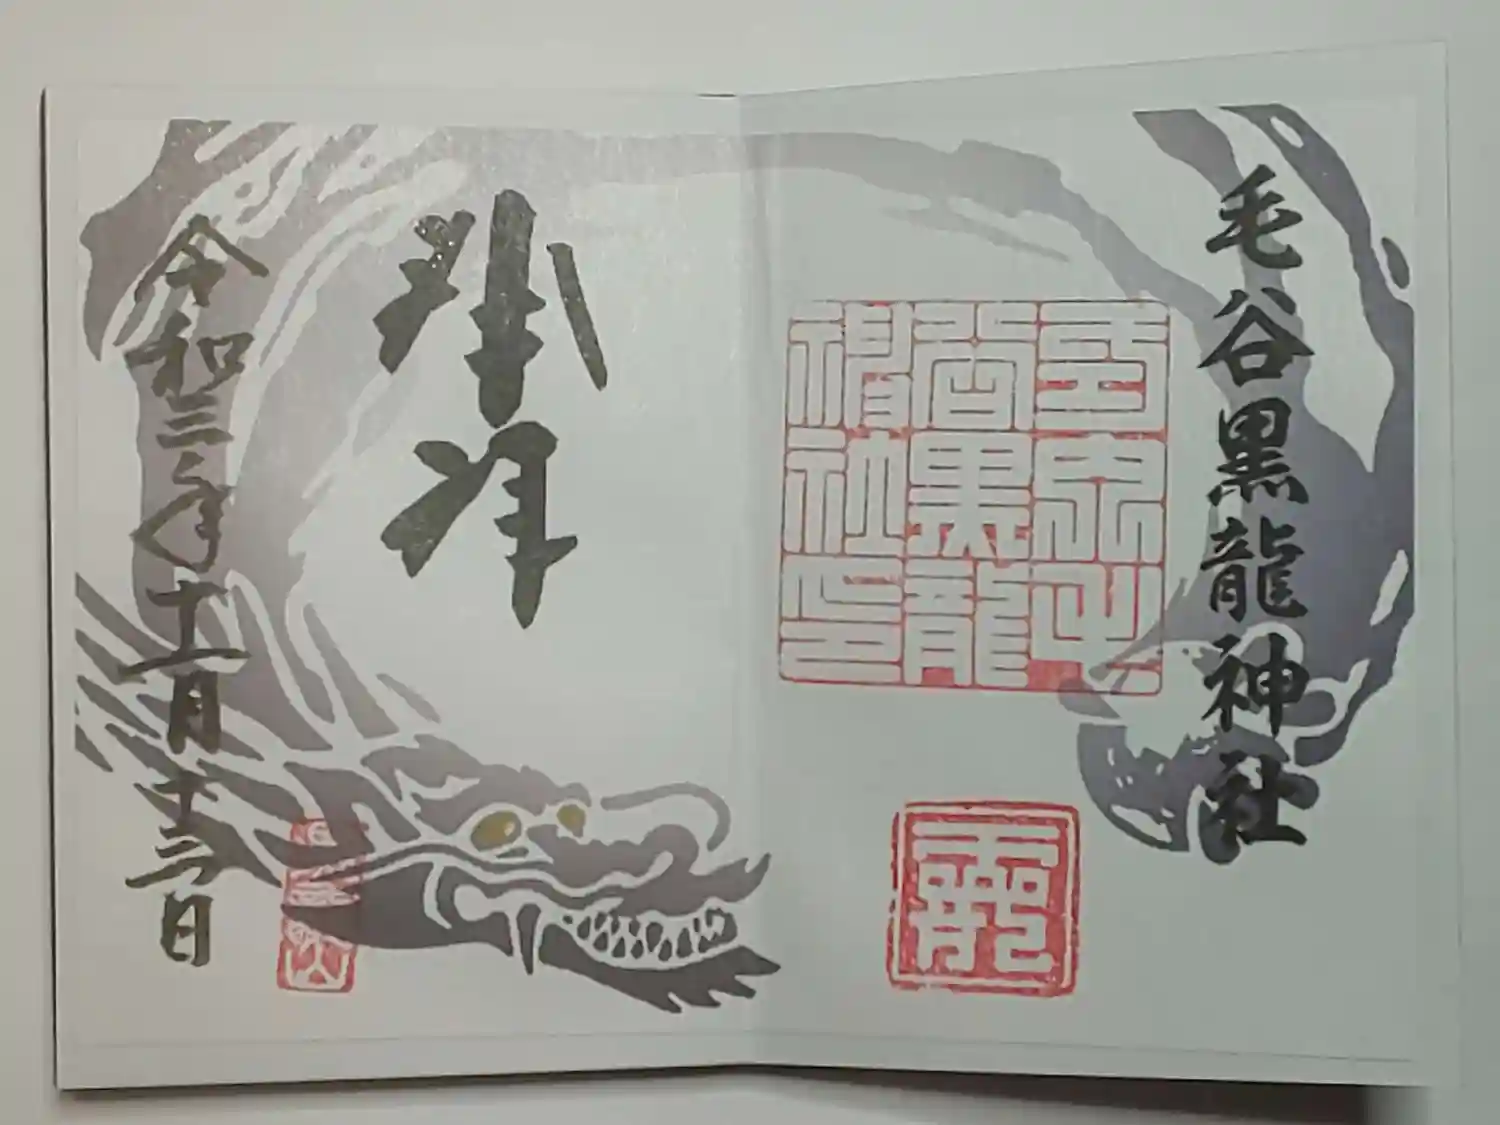 毛谷黒龍神社
谷黒龍
神社印
奉拝
令和三年十一月十三日